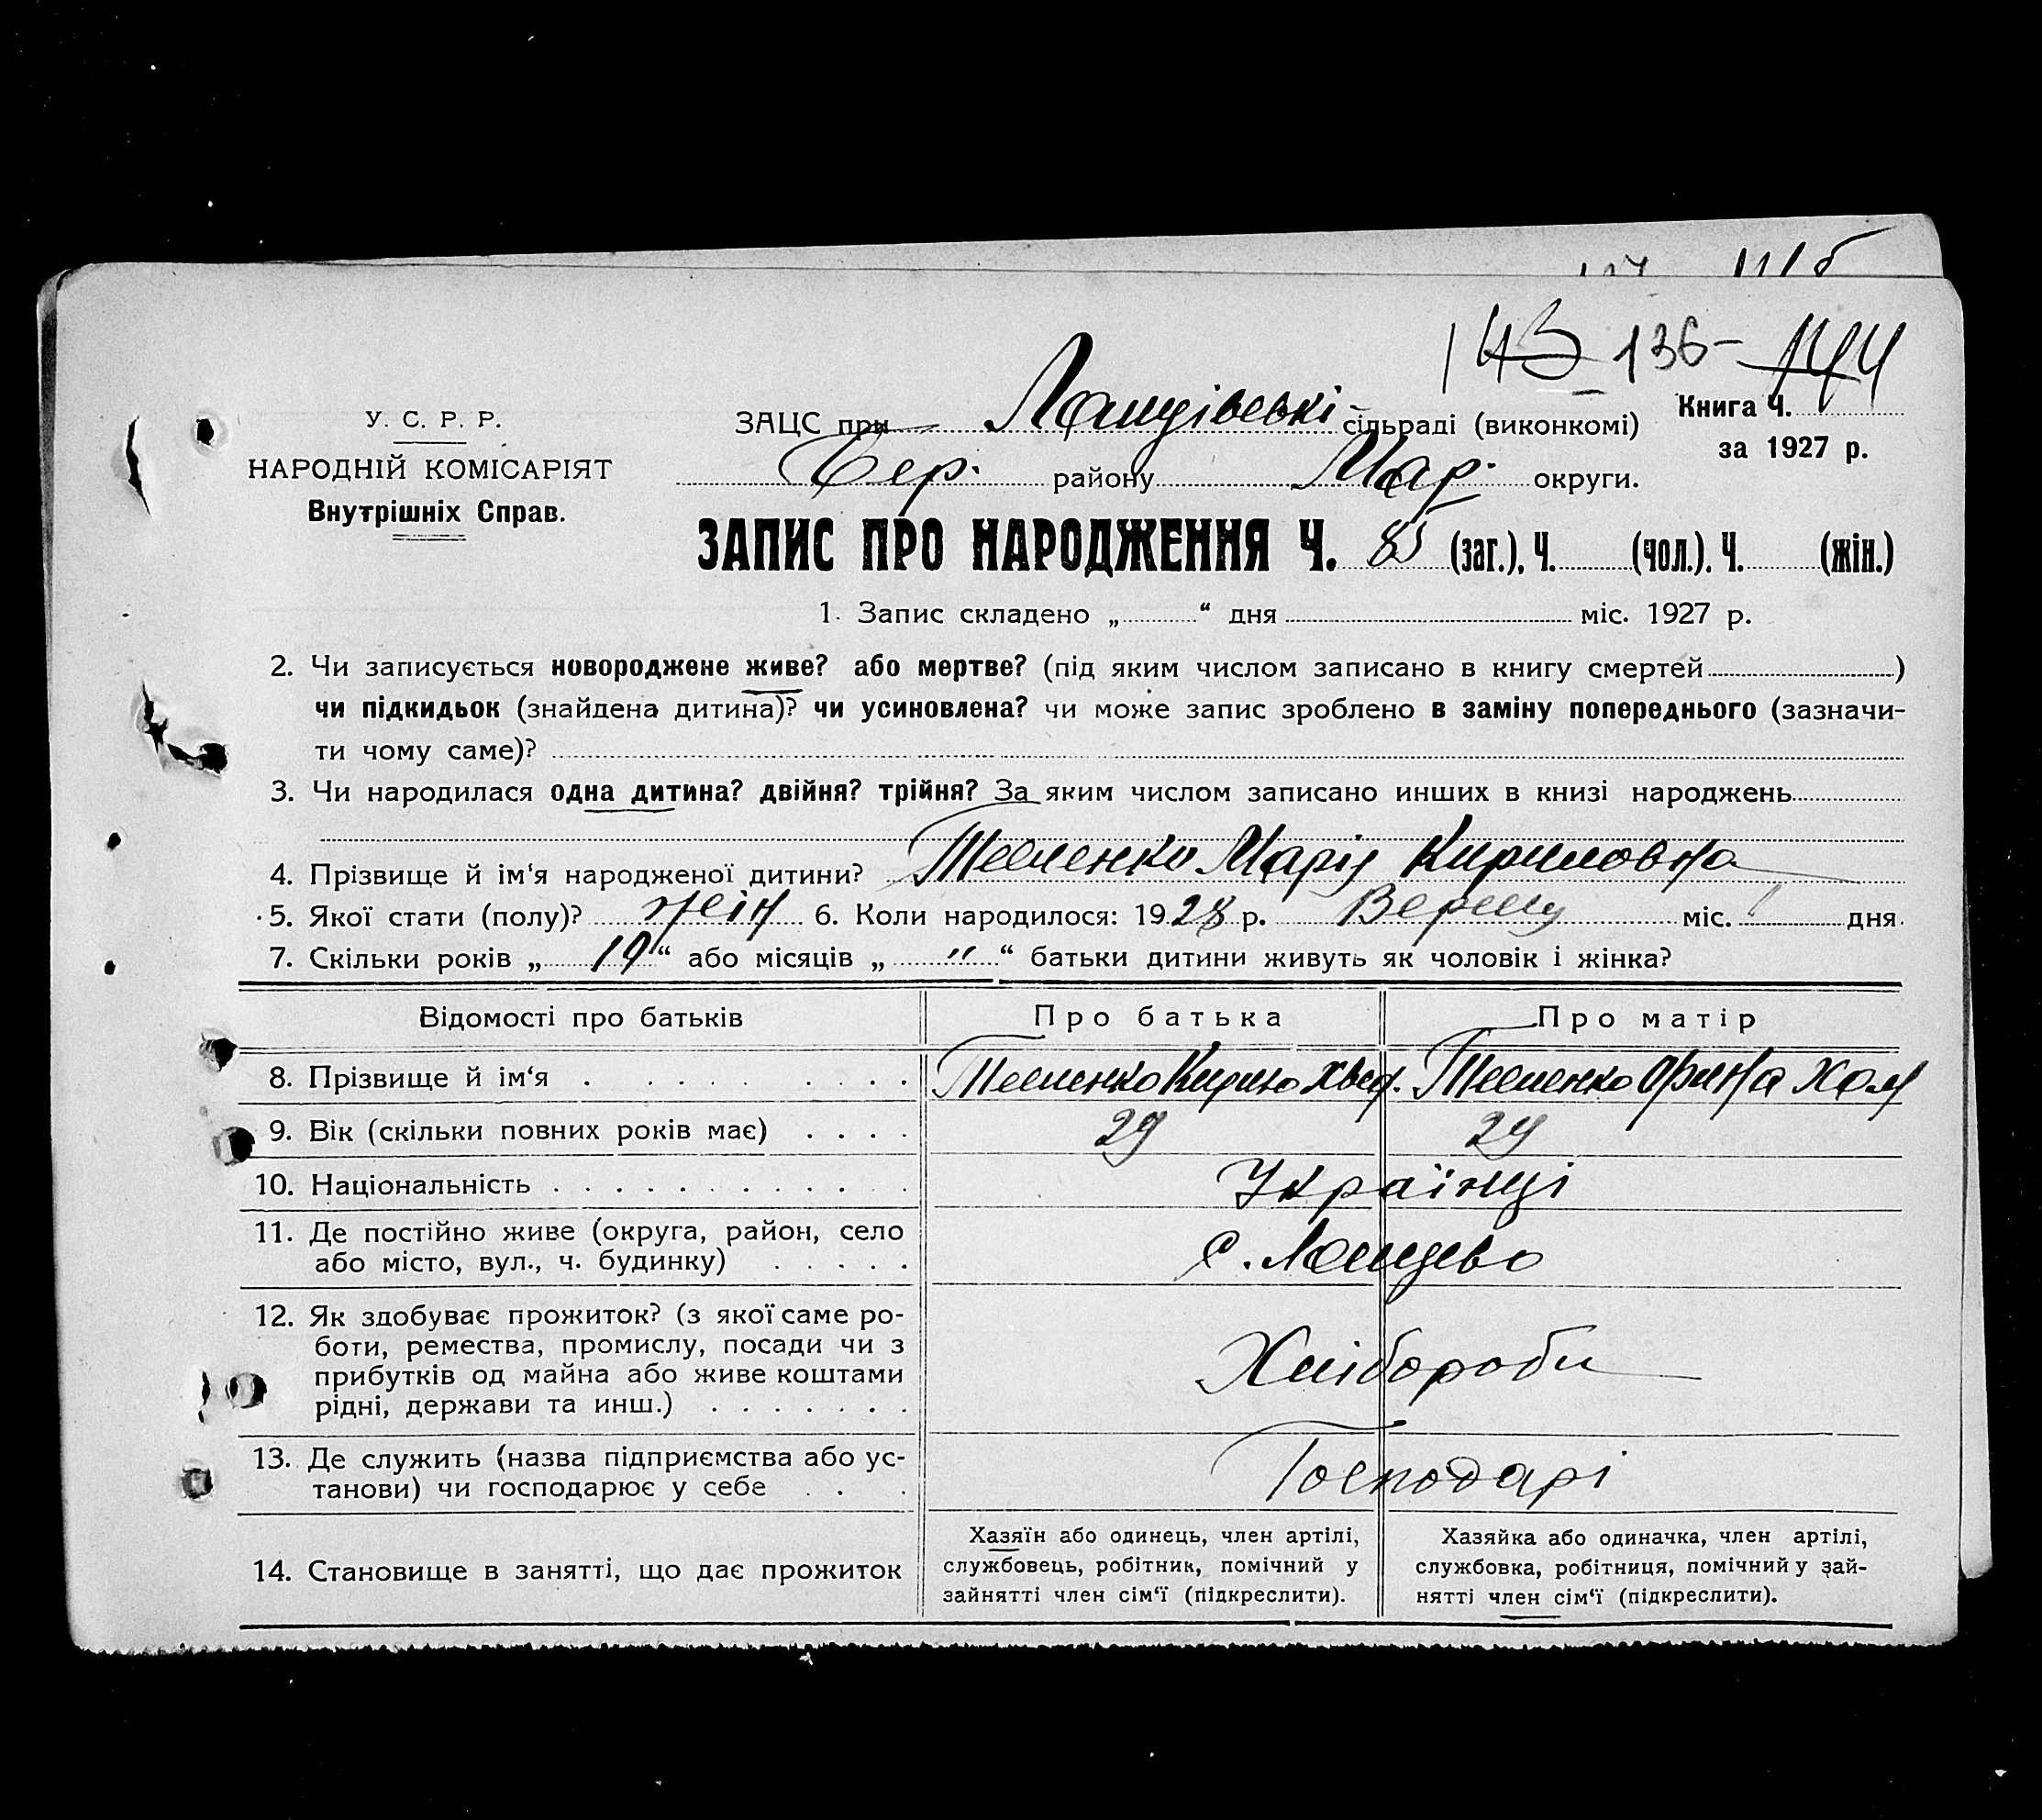 143 136- 144
У. С. Р. Р.
НАРОДНІЙ КОМІСАРІЯТ
Внутрішніх Справ.
ЗАЦС при Ланцівські сільраді (виконкомі)
Книга Ч.
за 1927 р.
Бер. району Мар. округи.
ЗАПИС ПРО НАРОДЖЕННЯ Ч. 85 (заг.), Ч. (чол.). Ч. (жін.)
1. Запис складено „ “ дня міс. 1927 р.
2. Чи записується новороджене живе? або мертве? (під яким числом записано в книгу смертей )
чи підкидьок (знайдена дитина)? чи усиновлена? чи може запис зроблено в заміну попереднього (зазначи-
ти чому саме)?
3. Чи народилася одна дитина? двійня? трійня? За яким числом записано инших в книзі народжень
4. Прізвище й ім‘я народженої дитини? Тесленко Марія Кириловна
5. Якої стати (полу)? жін 6. Коли народилося: 1928 р. міс. дня.
7. Скільки років „ 19 “ або місяців „ " “ батьки дитини живуть як чоловік і жінка?
Відомості про батьків Про батька Про матір
8. Прізвище й ім‘я Тесленко Кирило Хвед. Тесленко Орина
9. Вік (скільки повних років має) 29
10. Національність Українці
11. Де постійно живе (округа, район, село
або місто, вул., ч. будинку) с. Ланцево
12. Як здобуває прожиток? (з якої саме ро-
боти, ремества, промислу, посади чи з
прибутків од майна або живе коштами
рідні, держави та инш.) Хлібороби
13. Де служить (назва підприємства або ус-
танови) чи господарює у себе Господарі
14. Становище в занятті, що дає прожиток
Хазяїн або одинець, член артілі,
службовець, робітник, помічний у
зайнятті член сім‘ї (підкреслити).
Хазяйка або одиначка, член артілі,
службовка, робітниця, помічний у зай-
нятті член сім‘ї (підкреслити).